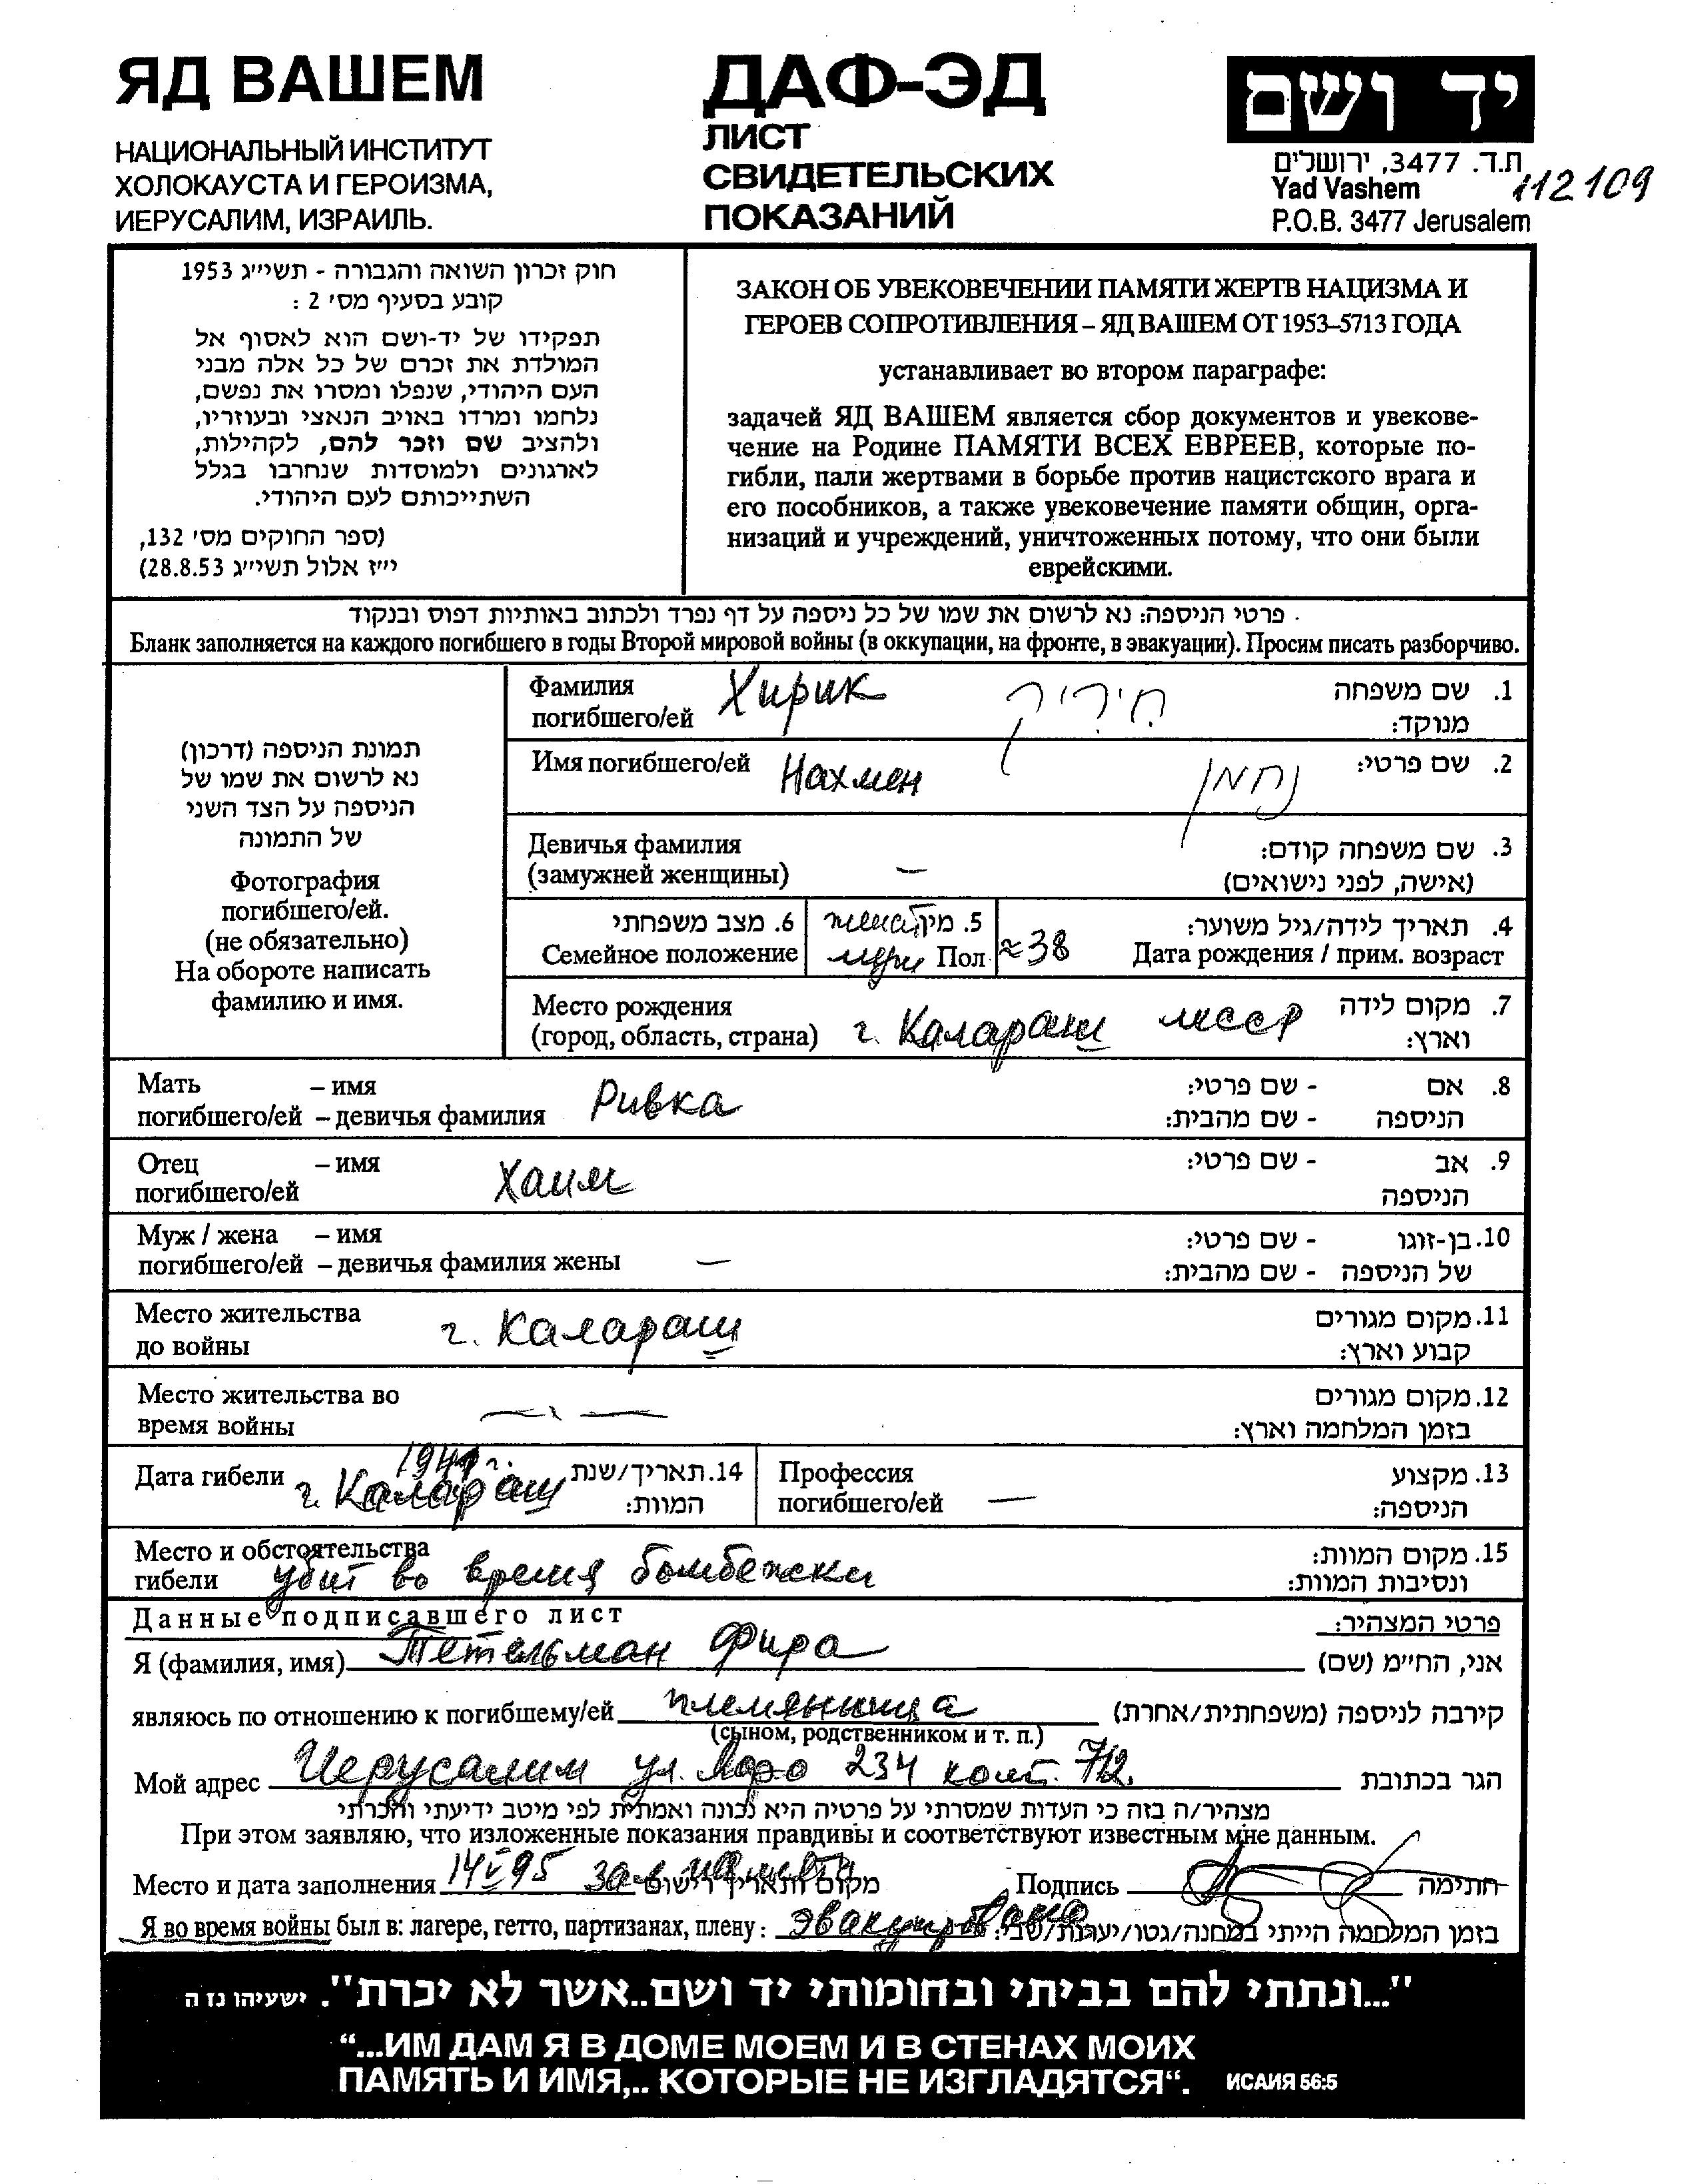 ЯД ВАШЕМ
НАЦИОНАЛЬНЫЙ ИНСТИТУТ
ХОЛОКАУСТА И ГЕРОИЗМА,
ИЕРУСАЛИМ, ИЗРАИЛЬ.
ДАФ-ЭД
ЛИСТ
СВИДЕТЕЛЬСКИХ
ПОКАЗАНИЙ
יד ושם
ת.ד. 3477, ירושלים
Yad Vashem
P.O.B. 3477 Jerusalem
112109
חוק זכרון השואה והגבורה - תשי״ג 1953
קובע בסעיף מס׳ 2 :
תפקידו של יד-ושם הוא לאסוף אל
המולדת את זכרם של כל אלה מבני
העם היהודי, שנפלו ומסרו את נפשם,
נלחמו ומרדו באויב הנאצי ובעוזריו,
ולהציב שם וזכר להם, לקהילות,
לארגונים ולמוסדות שנחרבו בגלל
השתייכותם לעם היהודי.
(ספר החוקים מס׳ 132,
י״ז אלול תשי״ג 28.8.53)
ЗАКОН ОБ УВЕКОВЕЧЕНИИ ПАМЯТИ ЖЕРТВ НАЦИЗМА И
ГЕРОЕВ СОПРОТИВЛЕНИЯ – ЯД ВАШЕМ ОТ 1953–5713 ГОДА
устанавливает во втором параграфе:
задачей ЯД ВАШЕМ является сбор документов и увекове-
чение на Родине ПАМЯТИ ВСЕХ ЕВРЕЕВ, которые по-
гибли, пали жертвами в борьбе против нацистского врага и
его пособников, а также увековечение памяти общин, орга-
низаций и учреждений, уничтоженных потому, что они были
еврейскими.
פרטי הניספה: נא לרשום את שמו של כל ניספה על דף נפרד ולכתוב באותיות דפוס ובנקוד
Бланк заполняется на каждого погибшего в годы Второй мировой войны (в оккупации, на фронте, в эвакуации). Просим писать разборчиво.
תמונת הניספה (דרכון)
נא לרשום את שמו של
הניספה על הצד השני
של התמונה
Фотография
погибшего/ей.
(не обязательно)
На обороте написать
фамилию и имя.
Фамилия
погибшего/ей Хирик חיריק 1. שם משפחה
מנוקד:
Имя погибшего/ей Нахмен נחמן 2. שם פרטי:
Девичья фамилия
(замужней женщины) — 3. שם משפחה קודם:
(אישה, לפני נישואים)
6. מצב משפחתי
Семейное положение
5. מין
муж Пол
≈38
4. תאריך לידה/גיל משוער:
Дата рождения / прим. возраст
Место рождения
(город, область, страна) г. Калараш мсср 7. מקום לידה
וארץ:
Мать – имя
погибшего/ей – девичья фамилия Ривка
8. אם - שם פרטי:
הניספה - שם מהבית:
Отец – имя
погибшего/ей Хаим
9. אב - שם פרטי:
הניספה
Муж / жена – имя
погибшего/ей – девичья фамилия жены —
10. בן-זוגו - שם פרטי:
של הניספה - שם מהבית:
Место жительства
до войны г. Калараш
11. מקום מגורים
קבוע וארץ:
Место жительства во
время войны
12. מקום מגורים
בזמן המלחמה וארץ:
Дата гибели 1941 г.
г. Калараш
14. תאריך/שנת
המוות:
Профессия
погибшего/ей —
13. מקצוע
הניספה:
Место и обстоятельства
гибели убит во время бомбежки
15. מקום המוות:
ונסיבות המוות:
Данные подписавшего лист פרטי המצהיר:
Я (фамилия, имя) Тетельман Фира אני, החי״מ (שם)
являюсь по отношению к погибшему/ей племянница קירבה לניספה (משפחתית/אחרת)
(сыном, родственником и т. п.)
Мой адрес Иерусалим ул. 234 712. הגר בכתובת
מצהיר/ה בזה כי העדות שמסרתי על פרטיה היא נכונה ואמתית לפי מיטב ידיעתי והכרתי
При этом заявляю, что изложенные показания правдивы и соответствуют известным мне данным.
Место и дата заполнения 14 V 95 מקום ותאריך רישום Подпись חתימה
Я во время войны был в: лагере, гетто, партизанах, плену: эвакуирована בזמן המלחמה הייתי במחנה/גטו/יערות/שבי:
"...ונתתי להם בביתי ובחומותי יד ושם..אשר לא יכרת". ישעיהו נז ה
“...ИМ ДАМ Я В ДОМЕ МОЕМ И В СТЕНАХ МОИХ
ПАМЯТЬ И ИМЯ,.. КОТОРЫЕ НЕ ИЗГЛАДЯТСЯ“. ИСАИЯ 56:5